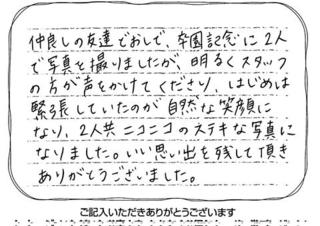 仲良しの友達どおしで、卒園記念に2人
で写真を撮りましたが、明るくスタッフ
の方が声をかけてくださり、はじめは
緊張していたのが自然な笑顔に
なり、2人共ニコニコのステキな写真に
なりました。いい思い出を残して頂き
ありがとうございました。
ご記入いただきありがとうございます